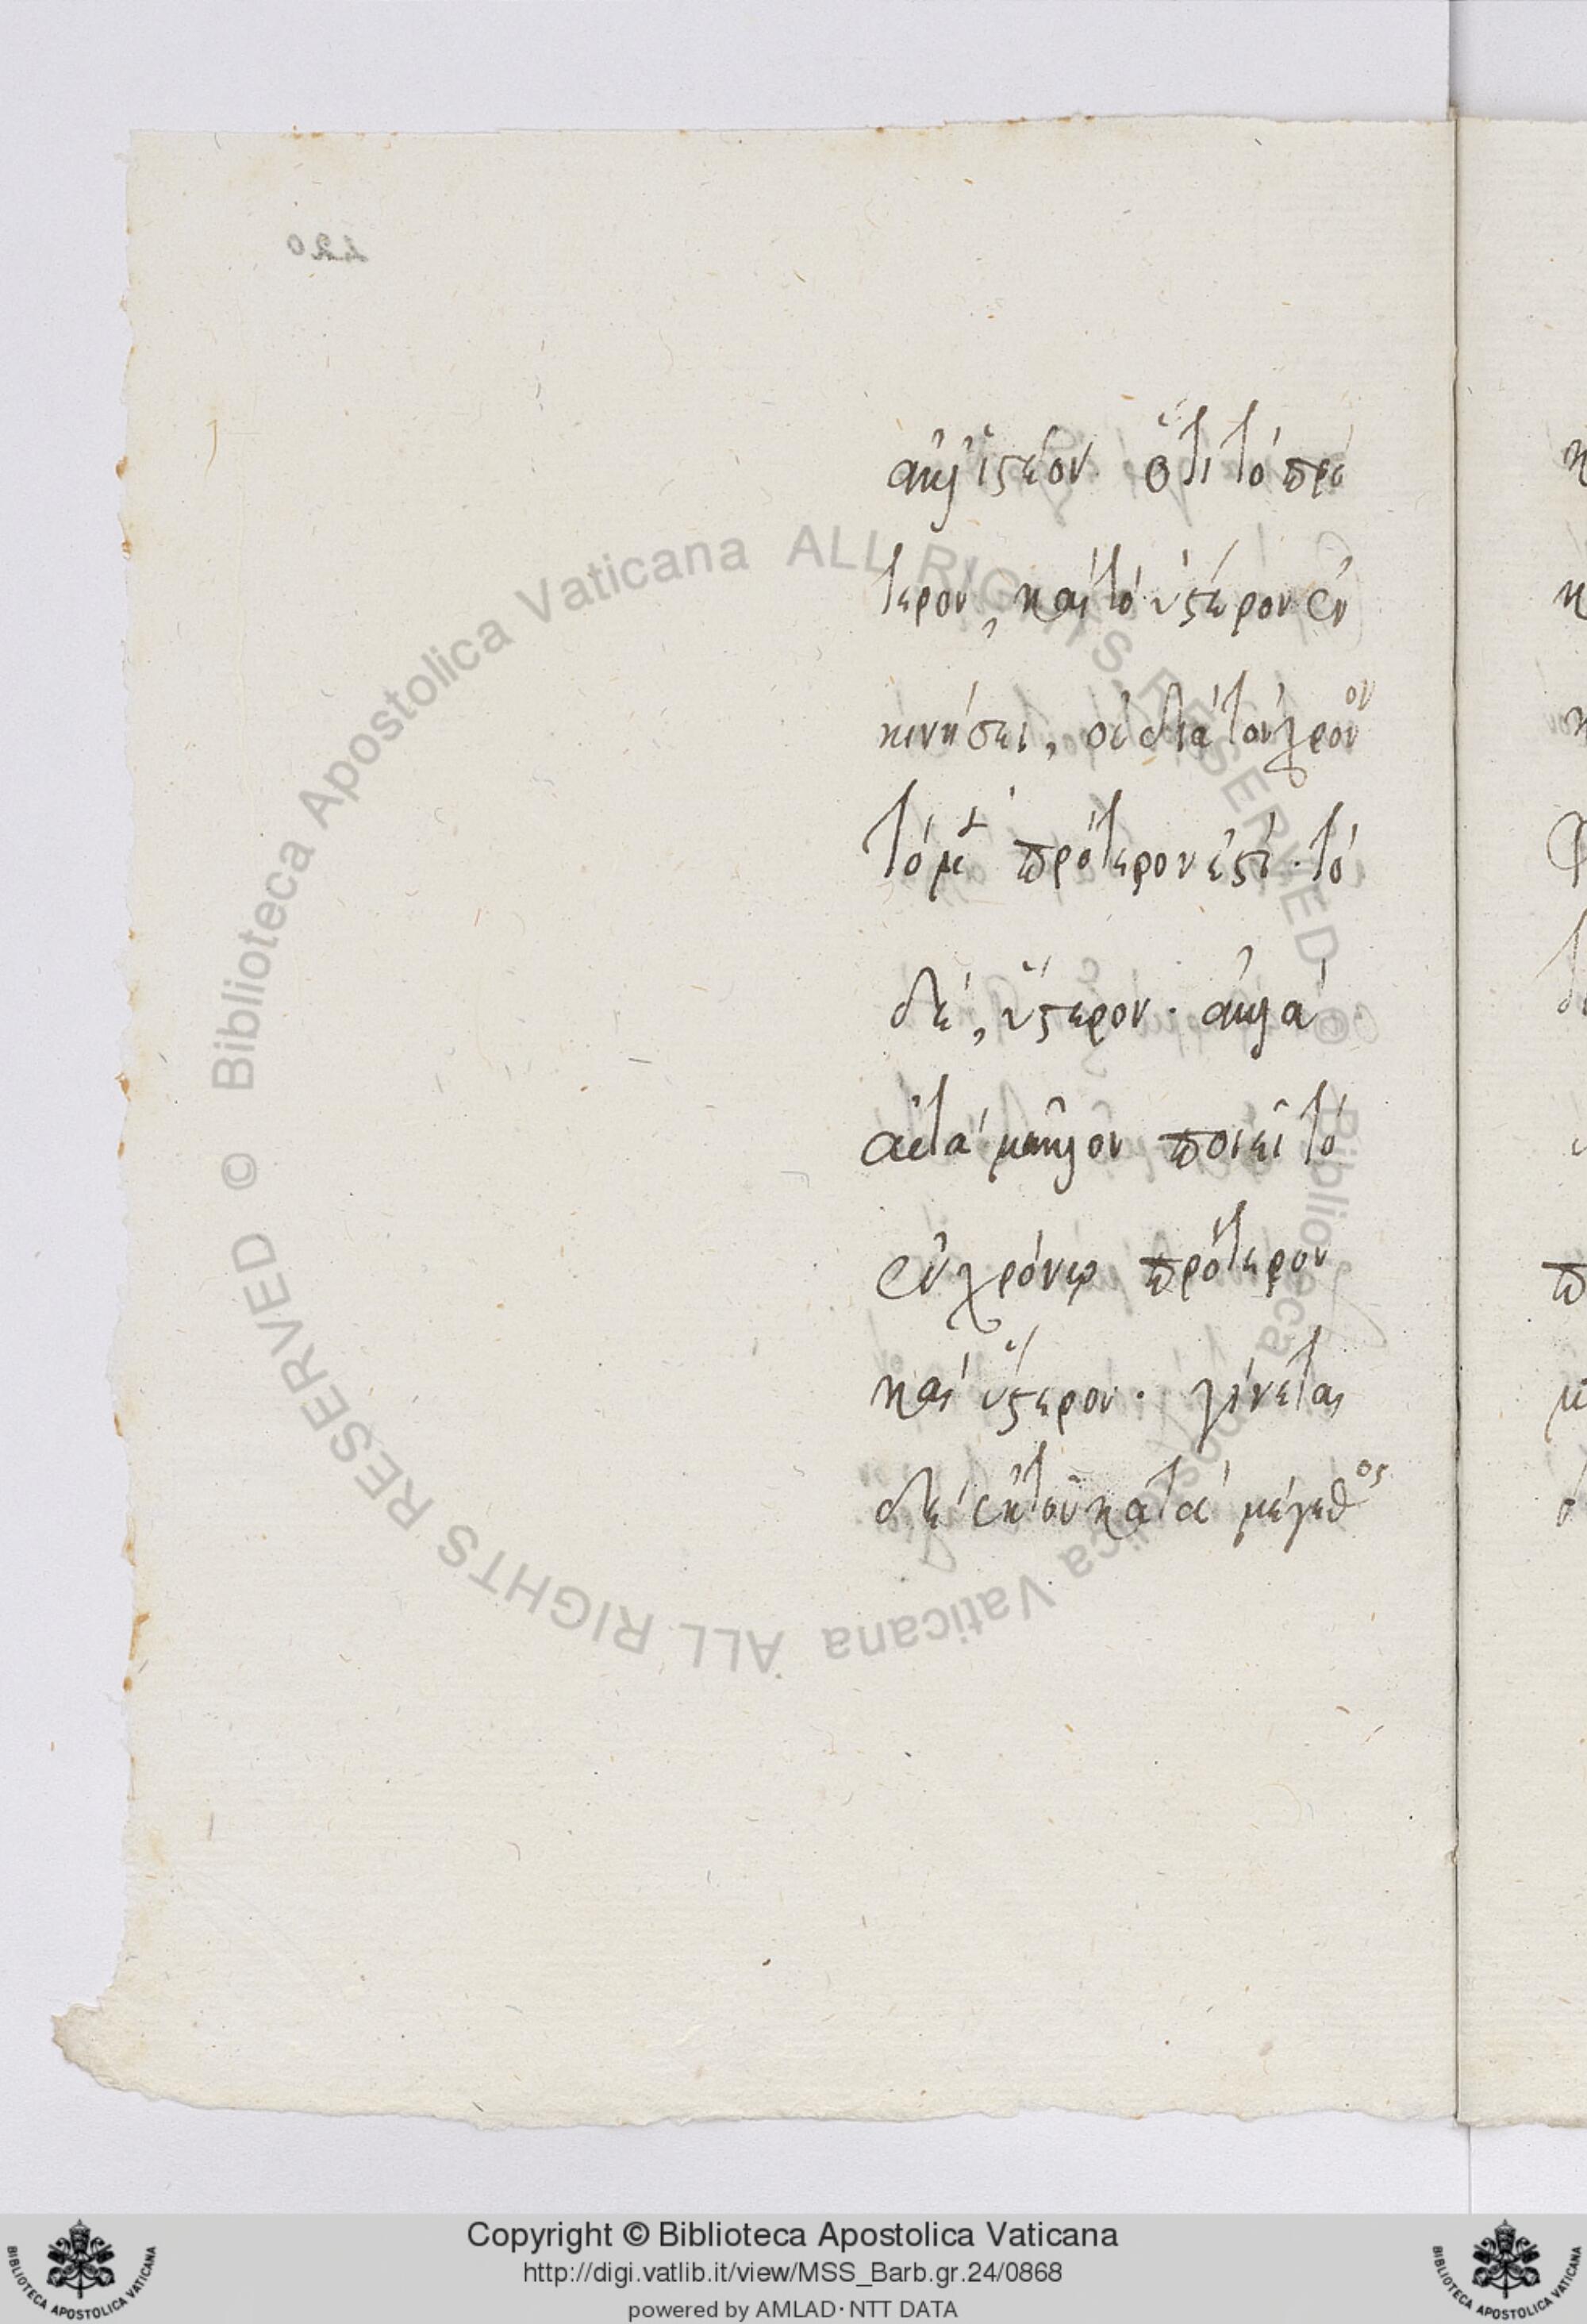 ἀλλ' ἰστέον. ὅτι τὸ πρό
τερον, καὶ τὸ ὕστερον ἐν
κινήσει, οὐ διὰ τὸν χρόνον
τὸ μὲν πρότερον ἐστὶ. τὸ
δὲ, ὕστερον. ἀλλὰ
αὐτὰ μᾶλλον ποιεῖ τὸ
ἐν χρόνῳ πρότερον
καὶ ὕστερον. γίνεται
δὲ ἐκ τοῦ κατὰ μέγεθος
420
© Biblioteca Apostolica Vaticana ALL RIGHTS RESERVED
© Biblioteca Apostolica Vaticana ALL RIGHTS RESERVED
Copyright © Biblioteca Apostolica Vaticana
http://digi.vatlib.it/view/MSS_Barb.gr.24/0868
powered by AMLAD · NTT DATA
BIBLIOTECA APOSTOLICA VATICANA
BIBLIOTECA APOSTOLICA VATICANA